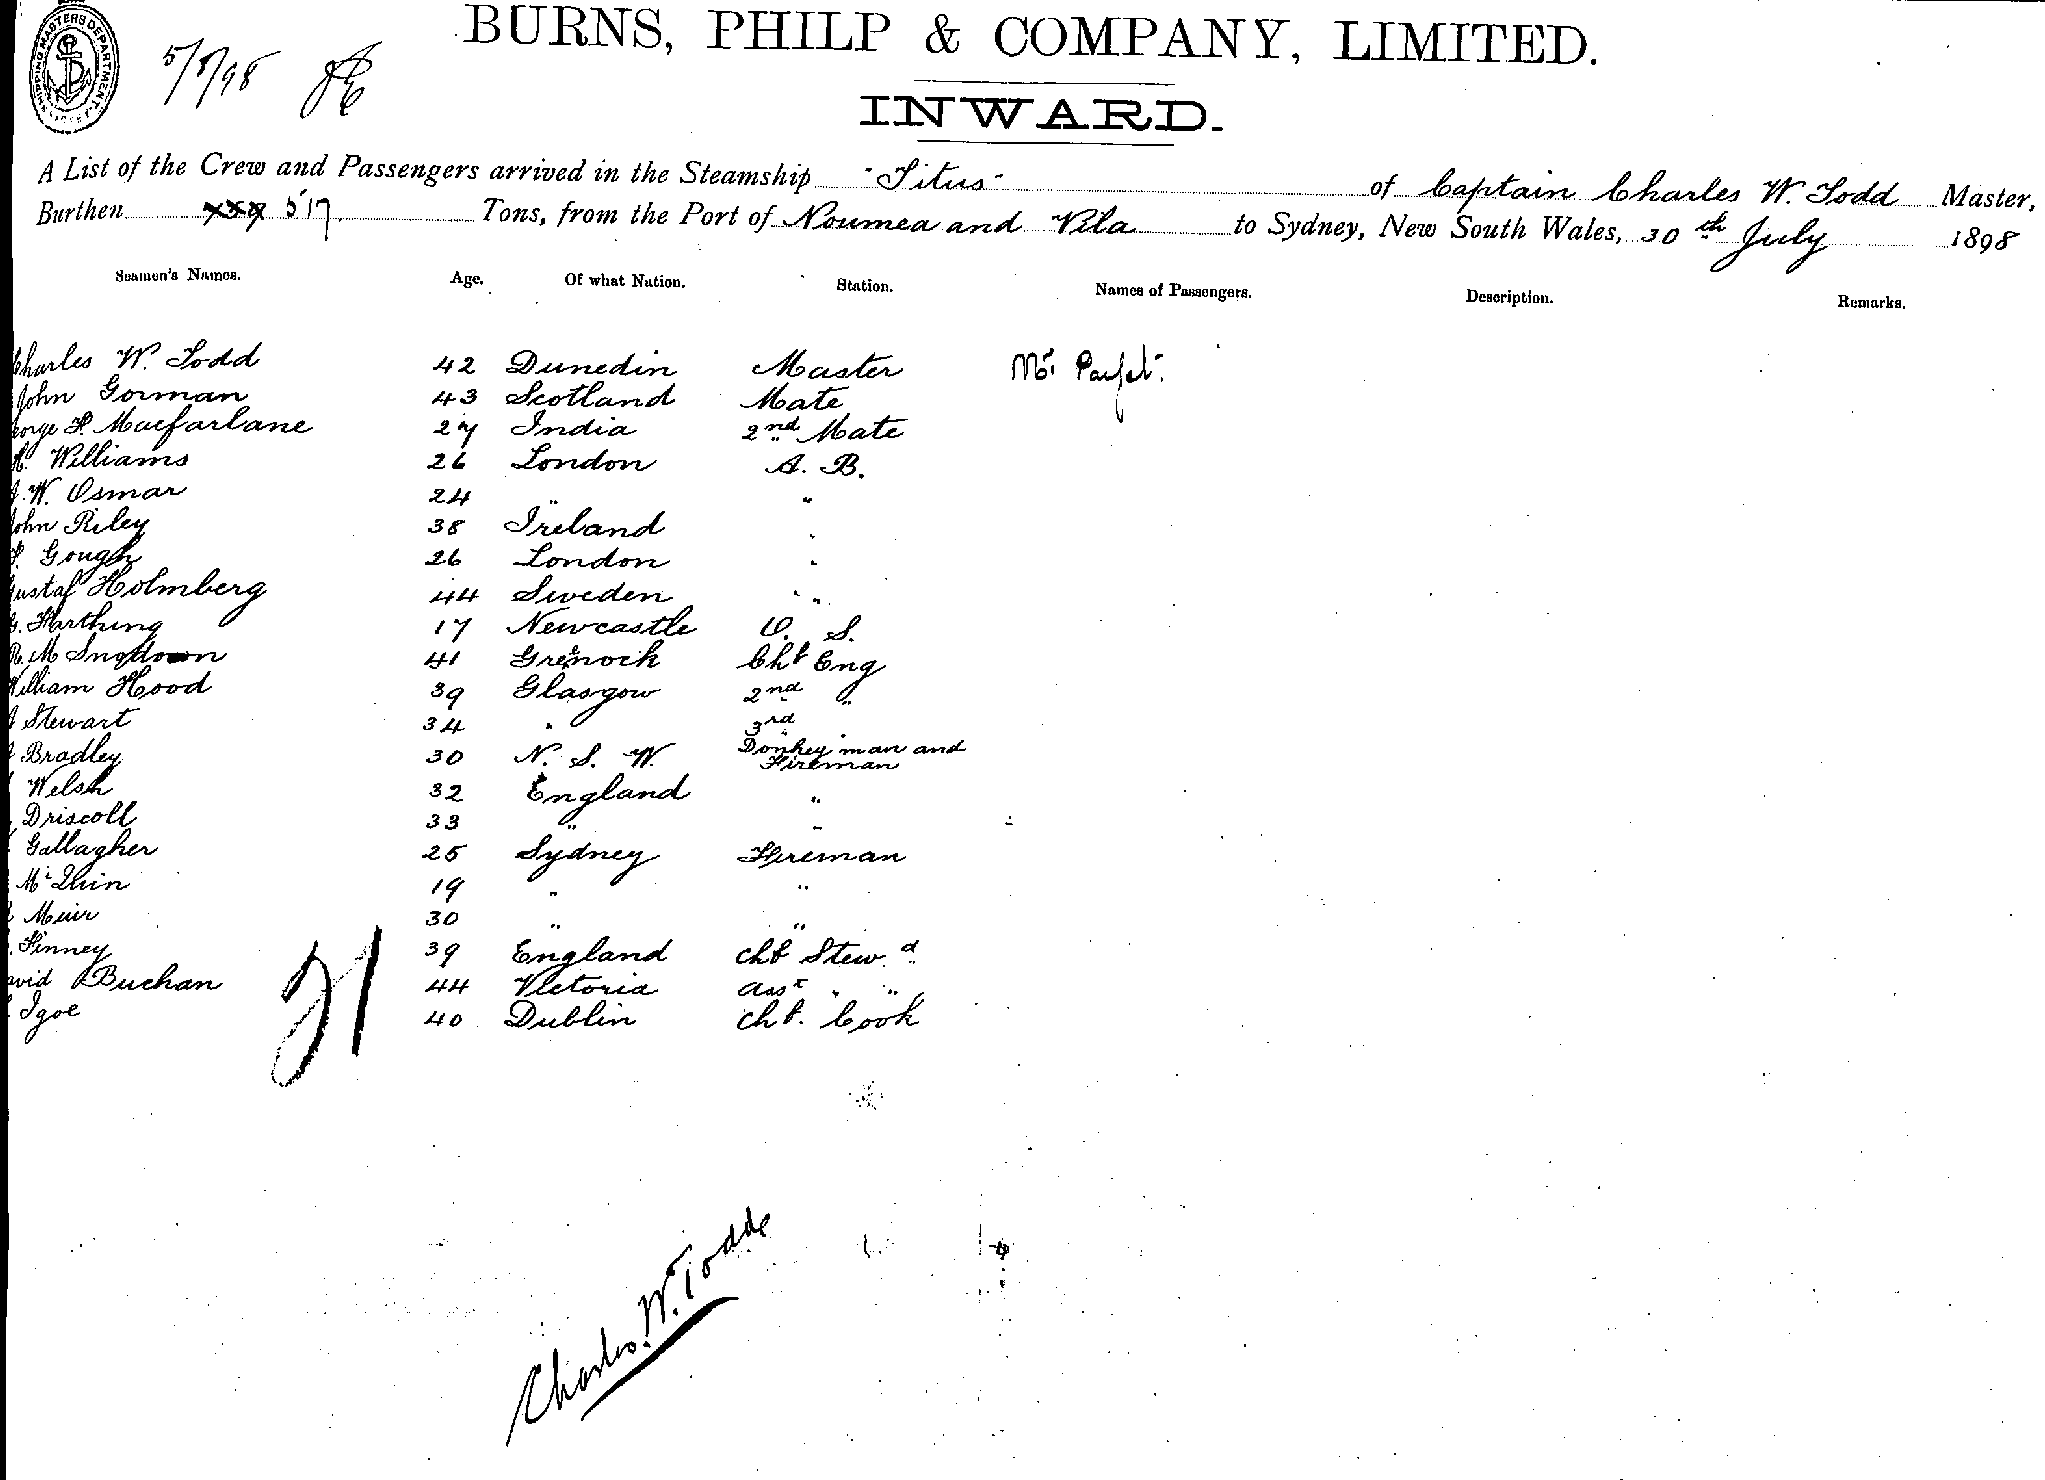 SHIPPING MASTERS DEPARTMENT
5/8/98
BURNS, PHILP & COMPANY, LIMITED.
INWARD.
A List of the Crew and Passengers arrived in the Steamship "Titus" of Captain Charles W. Todd Master,
Burthen 517 Tons, from the Port of Noumea and Vila to Sydney, New South Wales, 30th July 1898
Seamen's Names. Age. Of what Nation. Station. Names of Passengers. Description. Remarks.
Charles W. Todd 42 Dunedin Master Mr
John Gorman 43 Scotland Mate
George F. Macfarlane 27 India 2nd Mate
Williams 26 London A. B.
W. Osmar 24 " "
John Riley 38 Ireland "
Gough 26 London "
Gustaf Holmberg 44 Sweden " "
Harthing 17 Newcastle O. S.
R. M 41 Grenock Chf Eng
William Hood 39 Glasgow 2nd "
Stewart 34 " 3rd "
Bradley 30 N. S. W. Donkeyman and
Fireman
Welsh 32 England "
Driscoll 33 " "
Gallagher 25 Sydney Fireman
McQuin 19 " "
Meur 30 " "
Finney 39 England Chf Stewd
David Buchan 44 Victoria Asst " "
Igoe 40 Dublin Chf. Cook
21
Charles. W. Todd